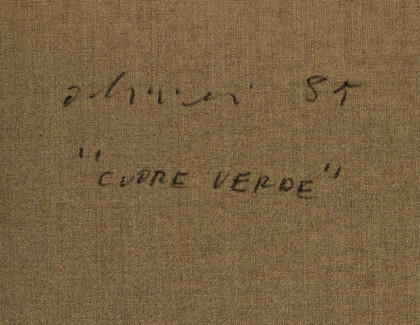 85
"CUORE VERDE"